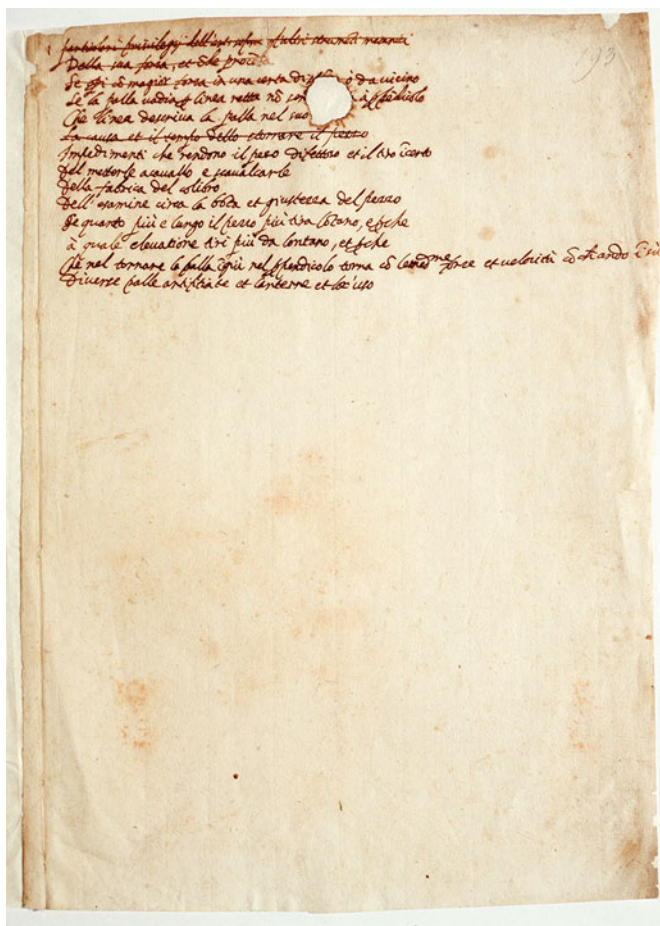 193
particolari privilegij dell'art. sopra gl'altri strumeti mecanici
Della sua forza, et onde proceda
Se operi cō magior forza in una certa distāza ò da vicino
Se la palla vadia p linea retta nō sendo à ppēdicolo
Che linea descriva la palla nel suo
La causa et il tempo dello stornare il pezzo
Impedimenti che rendono il pezo difettoso et il tiro īcerto
Del metterle acavallo e scavalcarle
Della fabrica del colibro
Dell'esamine circa la bōtà et giustezza del pezzo
Se quanto più e lungo il pezzo più tira lōtano, e pche
à quale elevatione tiri più da lontano, et pche
Che nel tornare la palla ī giù nel ppendicolo torna cō le med.me forze et velocità cō
Diverse palle artifitiate et lanterne et loc'uso